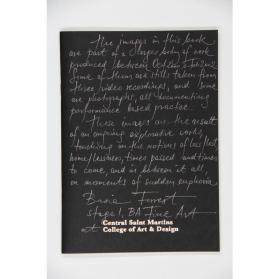 The images in this book
are part of a larger body of work
produced between Oct
Some of them are still taken from
three video recordings, and some
are photographs, all documenting
performance based practice.
These images are the result
of an ongoing explorative work,
touching on the notions of
home/lessness, times passed and times
to come, and in between it all,
on moments of sudden euphoria.
Stage 1, BA Fine Art
at
Central Saint Martins
College of Art & Design